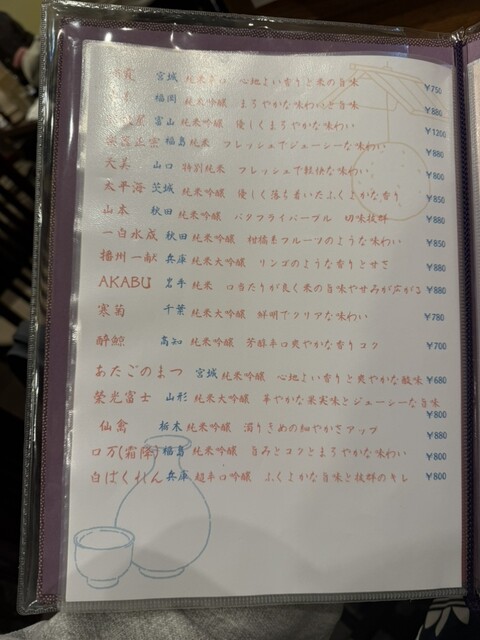 宮城 純米辛口 心地よい香りと米の旨味 ¥750
福岡 純米吟醸 まろやかな味わいと旨味 ¥880
富山 純米吟醸 優しくまろやかな味わい ¥1200
正宗 福島 純米 フレッシュでジューシーな味わい ¥880
天美 山口 特別純米 フレッシュで軽快な味わい ¥800
太平海 茨城 純米吟醸 優しく落ち着いたふくよかな香り ¥850
山本 秋田 純米吟醸 バタフライパープル 切味抜群 ¥880
一白水成 秋田 純米吟醸 柑橘系フルーツのような味わい ¥850
播州一献 兵庫 純米大吟醸 リンゴのような香りと甘さ ¥880
AKABU 岩手 純米 口当たりが良く米の旨味や甘みが広がる ¥880
寒菊 千葉 純米大吟醸 鮮明でクリアな味わい ¥780
酔鯨 高知 純米吟醸 芳醇辛口爽やかな香りコク ¥700
あたごのまつ 宮城 純米吟醸 心地よい香りと爽やかな酸味 ¥680
榮光冨士 山形 純米大吟醸 華やかな果実味とジューシーな旨味
¥800
仙禽 栃木 純米吟醸 濁りきめの細やかさアップ ¥880
ロ万(霜降) 福島 純米吟醸 旨みとコクとまろやかな味わい ¥800
白ばくれん 兵庫 超辛口吟醸 ふくよかな旨味と抜群のキレ ¥800